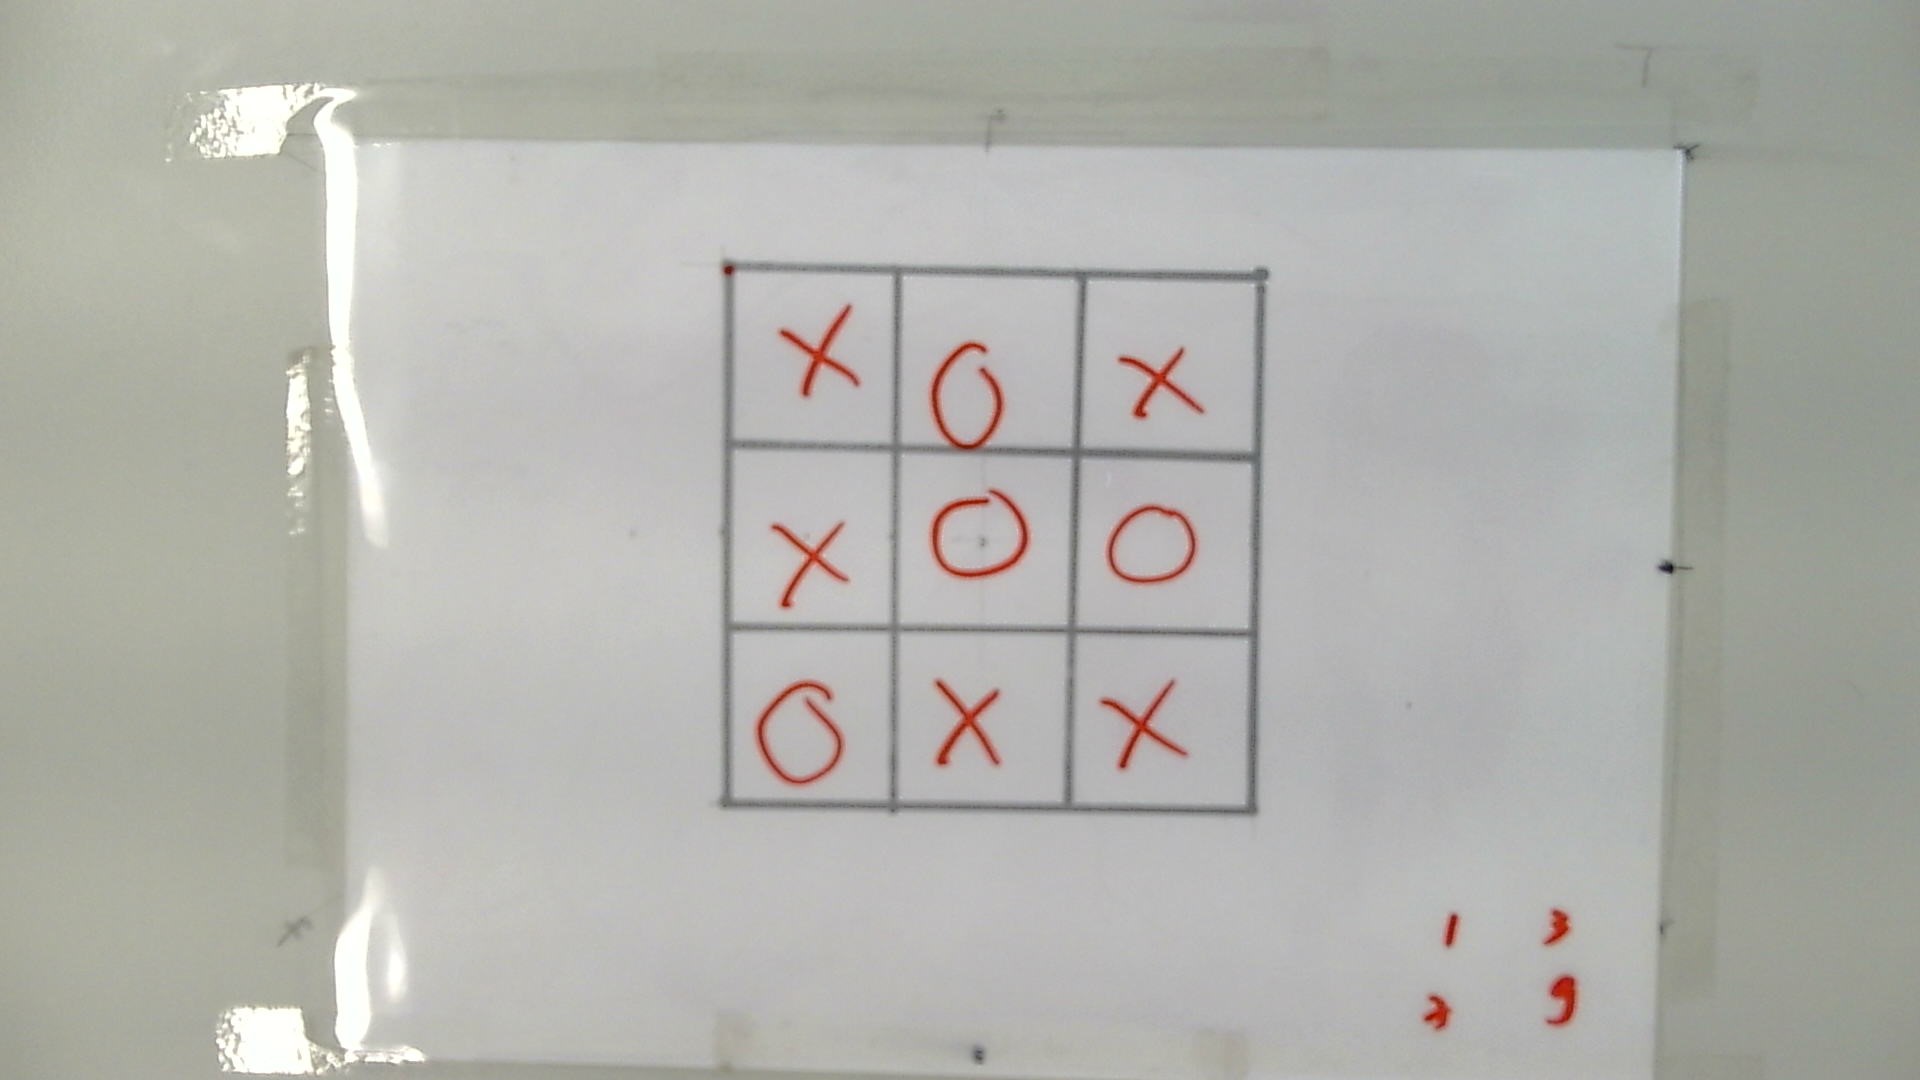 X O X
X O O
O X X
1 3
2 9